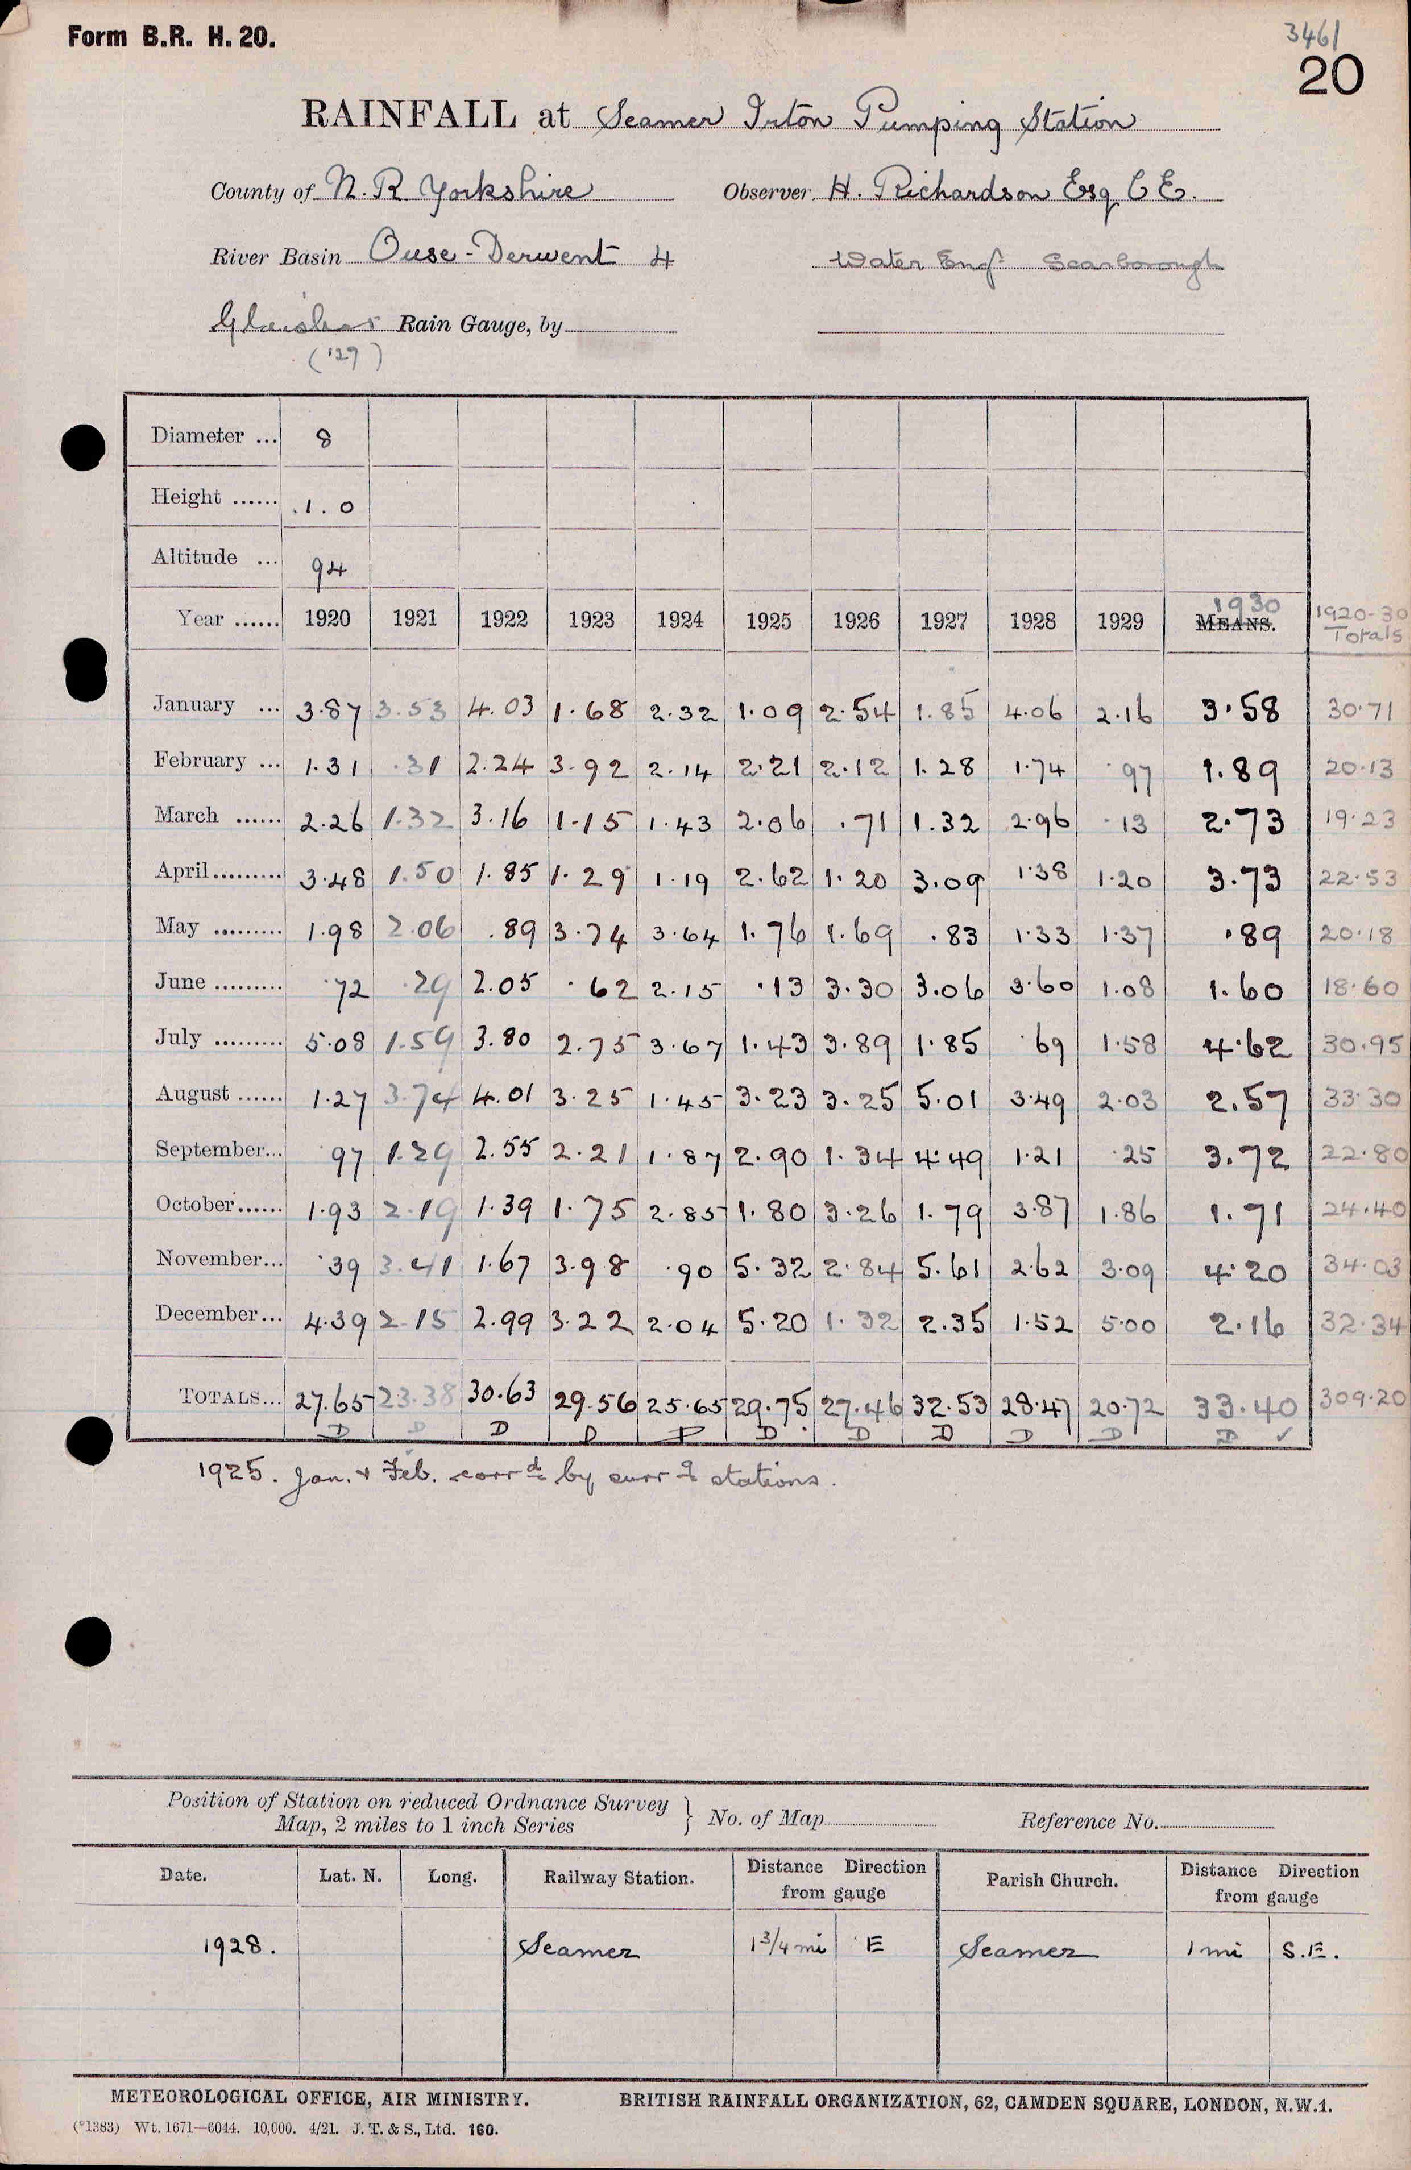 Form B.R. H. 20.
3461
20
RAINFALL at Seamer Irton Pumping Station
County of N. R. Yorkshire Observer H. Richardson Esq C E.
River Basin Ouse - Derwent 4 Water Engr Scarborough
Glaisher Rain Gauge, by
('27)
Diameter ... 8
Height ...... 1.0
Altitude ... 94
Year ...... 1920 1921 1922 1923 1924 1925 1926 1927 1928 1929 MEANS. 1930 1920-30 Totals
January ... 3.87 3.53 4.03 1.68 2.32 1.09 2.54 1.85 4.06 2.16 3.58 30.71
February ... 1.31 .31 2.24 3.92 2.14 2.21 2.12 1.28 1.74 .97 1.89 20.13
March ...... 2.26 1.32 3.16 1.15 1.43 2.06 .71 1.32 2.96 .13 2.73 19.23
April......... 3.48 1.50 1.85 1.29 1.19 2.62 1.20 3.09 1.38 1.20 3.73 22.53
May ......... 1.98 2.06 .89 3.74 3.64 1.76 1.69 .83 1.33 1.37 .89 20.18
June ......... .72 .29 2.05 .62 2.15 .13 3.30 3.06 3.60 1.08 1.60 18.60
July ......... 5.08 1.59 3.80 2.75 3.67 1.43 3.89 1.85 .69 1.58 4.62 30.95
August ...... 1.27 3.74 4.01 3.25 1.45 3.23 3.25 5.01 3.49 2.03 2.57 33.30
September... .97 1.29 2.55 2.21 1.87 2.90 1.34 4.49 1.21 .25 3.72 22.80
October...... 1.93 2.19 1.39 1.75 2.85 1.80 3.26 1.79 3.87 1.86 1.71 24.40
November... .39 3.41 1.67 3.98 .90 5.32 2.84 5.61 2.62 3.09 4.20 34.03
December... 4.39 2.15 2.99 3.22 2.04 5.20 1.32 2.35 1.52 5.00 2.16 32.34
TOTALS... 27.65 23.38 30.63 29.56 25.65 29.75 27.46 32.53 28.47 20.72 33.40 309.20
D D D D D D D D D D D ✓
1925. Jan. & Feb. corrd by surrg stations.
Position of Station on reduced Ordnance Survey
Map, 2 miles to 1 inch Series } No. of Map Reference No.
Date. Lat. N. Long. Railway Station. Distance Direction from gauge Parish Church. Distance Direction from gauge
1928. Seamer 1 3/4 mi E Seamer 1 mi S.E.
METEOROLOGICAL OFFICE, AIR MINISTRY. BRITISH RAINFALL ORGANIZATION, 62, CAMDEN SQUARE, LONDON, N.W.1.
(*1383) Wt. 1671—6044. 10,000. 4/21. J. T. & S., Ltd. 160.